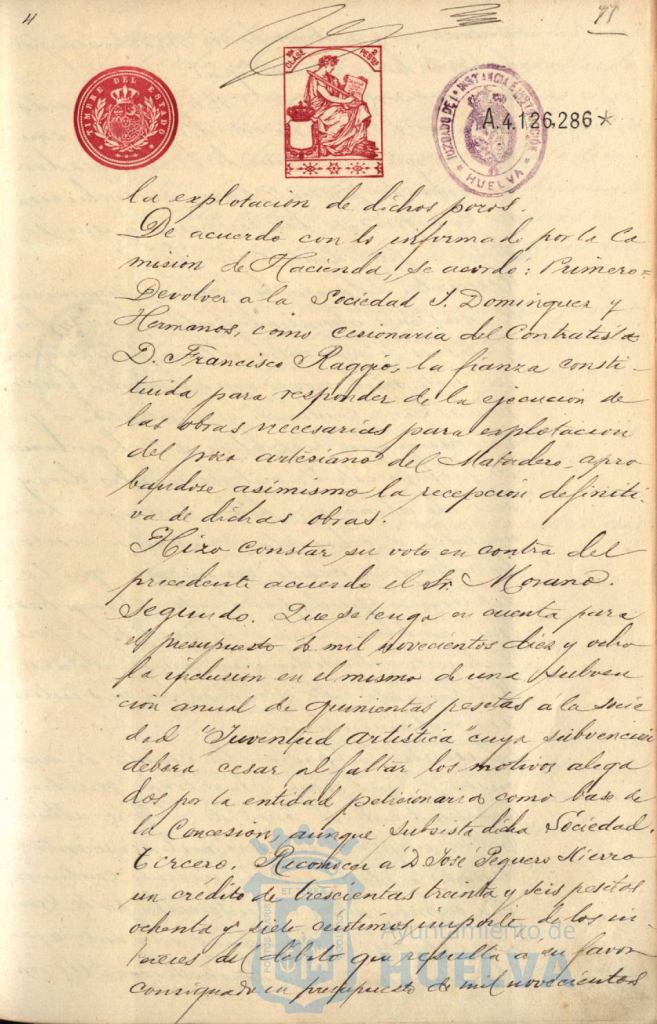 4
77
TIMBRE DEL ESTADO
9ª CLASE 2 PESETAS
JUZGADO DE 1ª INSTANCIA E INSTRUCCIÓN
HUELVA
A.4.126,286*
la explotacion de dichos pozos.
De acuerdo con lo informado por la Co
mision de Hacienda, se acordó: Primero=
Devolver á la Sociedad J. Dominguez y
Hermanos, como cesionaria del Contratista
D. Francisco Raggio, la fianza consti-
tuida para responder de la ejecucion de
las obras necesarias para explotacion
del pozo artesiano del Matadero, apro
bandose asimismo la recepcion definiti-
va de dichas obras.
Hizo constar su voto en contra del
precedente acuerdo el Sr. Morano.
Segundo. Que se tenga en cuenta para
el presupuesto de mil novecientos diez y ocho
la inclusion en el mismo de una subven
cion anual de quinientas pesetas á la socie
dad "Juventud Artística" cuya subvencion
debera cesar al faltar los motivos alega
dos por la entidad peticionaria como base de
la Concesion, aunque subsista dicha Sociedad.
Tercero. Reconocer á D. José Peguero Hierro
un crédito de trescientas treinta y seis pesetas
ochenta y siete centimos importe de los in-
tereses del débito que resulta a su favor
consignado en presupuesto de mil novecientos
Ayuntamiento de
HUELVA